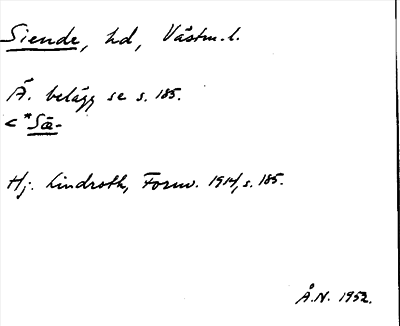 Siende, hd, Västm. l.
Ä. belägg se s. 185.
< *Sæ-
Hj. Lindroth, Fornv. 1914, s. 185.
Å.N. 1952.